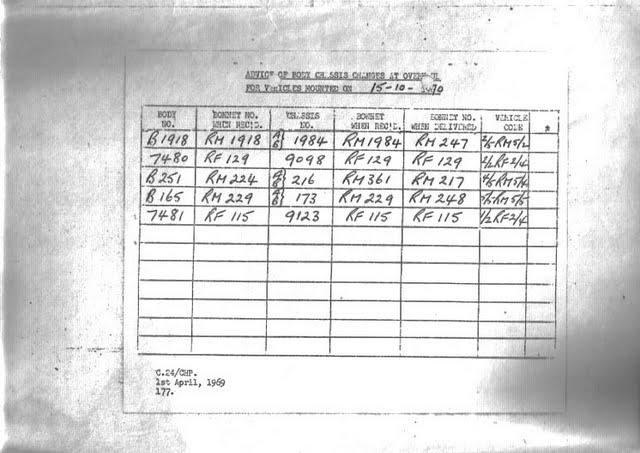 ADVICE OF BODY CHASSIS CHANGES AT OVERHAUL
FOR VEHICLES MOUNTED ON 15-10-1970
BODY NO. BONNET NO. WHEN REC'D. CHASSIS NO. BONNET WHEN REC'D. BONNET NO. WHEN DELIVERED VEHICLE CODE *
B1918 RM 1918 A/B} 1984 RM1984 RM 247 2/5-RM5/2
7480 RF 129 9098 RF 129 RF 129 2/2RF2/4
B251 RM 224 A/B} 216 RM361 RM 217 4/5RM5/4
B165 RM 229 A/B} 173 RM229 RM 248 5/5RM5/5
7481 RF 115 9123 RF 115 RF 115 1/2RF2/4
C.24/CHP.
1st April, 1969
177.